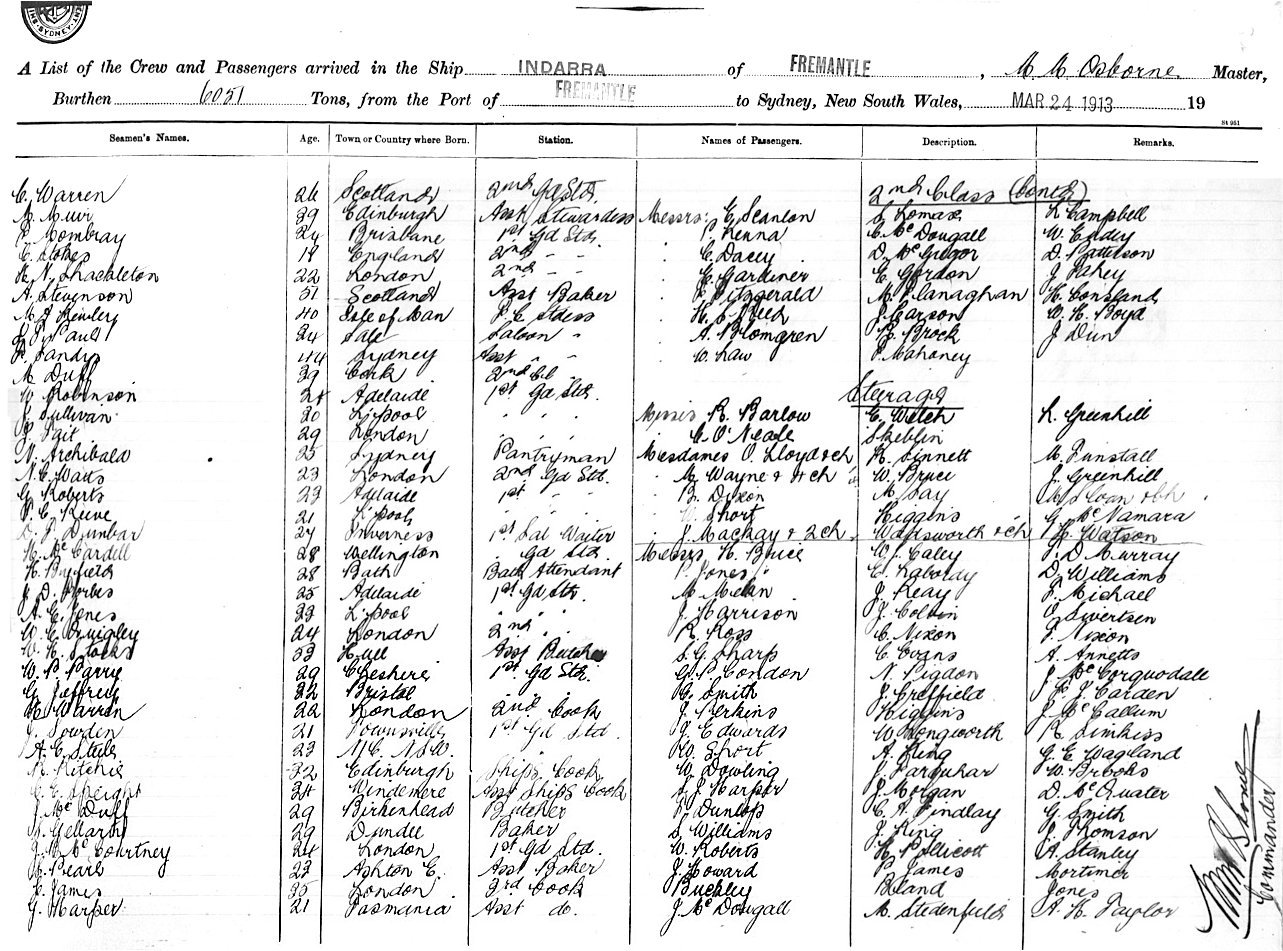 SYDNEY
A List of the Crew and Passengers arrived in the Ship INDARRA of FREMANTLE, M. M. Osborne Master,
Burthen 6051 Tons, from the Port of FREMANTLE to Sydney, New South Wales, MAR 24 1913 19
St 951
Seamen's Names. Age. Town or Country where Born. Station. Names of Passengers. Description. Remarks.
2nd Class (Contd)
C. Warren 26 Scotland 2nd Gd Std.
M. Muir 39 Edinburgh Asst Stewardess Messrs: E. Scanlon S. Lomax L. Campbell
P. Mombray 24 Brisbane 1st Gd Std. Kenna C. McDougall W. Endey
C. Stokes 18 England 2nd " " C. Dacey D. McGregor D. Patterson
H. N. Shackleton 22 London 2nd " " E. Gardiner E. Gordon J. Fahey
A. Stevenson 31 Scotland Asst Baker Fitzgerald M. Flanaghan H. Consland
M. J. Kewley 40 Isle of Man F. C. Stdess H. C. Reed J. Carson W. H. Boyd
Paul 24 Sale Saloon " A. Blomgren R. Brock J. Dun
Sandys 44 Sydney Asst " " W. Law P. Mahoney
M. Duff 39 Cork 2nd Cl
W. Robinson 28 Adelaide 1st Gd Std. Steerage
J. Sullivan 20 L'pool " " " Messrs R. Barlow E. Welch L. Greenhill
J. Tait 29 London " " " C. O'Neale Skeblin
N. Archibald 25 Sydney Pantryman Mesdames O. Lloyd & ch R. Sinnett M. Tunstall
N. C. Watts 23 London 2nd Gd Std. M. Wayne & 4 ch W. Bruce J. Greenhill
G. Roberts 23 Adelaide 1st " " B. Dixon M. Say
P. C. Reeve 21 L'pool Short Higgins G. McNamara
D. J. Dunbar 27 Inverness 1st Sal Waiter J. Mackay & 2 ch Wadsworth & ch Watson
H. McCardell 28 Wellington Gd Std. Messrs H. Bruce W. Caley D. Murray
H. Byfield 28 Bath Bath Attendant Jones E. Labordy D. Williams
J. D. Forbes 25 Adelaide 1st Gd Std. M. Mclean J. Reay F. Michael
A. E. Jones 23 L'pool " " J. Harrison J. Colvin Sivertsen
W. E. Quigley 24 London 2nd " R. Ross C. Nixon Nixon
W. H. Stocks 33 Hull Asst Butcher S. G. Sharp C. Evans A. Annetts
W. P. Parry 29 Cheshire 1st Gd Std. G. P. Condon N. Pigdon J. McCorquodale
G. Jeffrey 32 Bristol G. Smith J. Creffield J. Carden
H. Warren 22 London 2nd Cook J. Perkins Higgins J. McCallum
J. Sowden 21 Townsville 1st Gd Std. J. Edwards W. Longworth R. Simkiss
A. C. Steele 23 N.S.W. W. Short A. King G. E. Wagland
R. Ritchie 32 Edinburgh Ship's Cook W. Dowling J. Farquhar W. Brooks
C. E. Speight 24 Windemere Asst Ship's Cook S. J. Harper J. Morgan D. McQuater
J. McDuff 29 Birkenhead Butcher P. Dunlop C. A. Findlay G. Smith
Gellarty 29 Dundee Baker S. Williams J. King J. Thomson
J. H. McCourtney 24 London 1st Gd Std. W. Roberts H. P. Ellicott A. Stanley
Pearl 23 Ashton E. Asst Baker J. Howard P. James Mortimer
C. James 35 London 3rd Cook Buckley Boland Jones
G. Harper 21 Tasmania Asst do. J. McDougall M. Stedenfeld A. H. Taylor
Commander